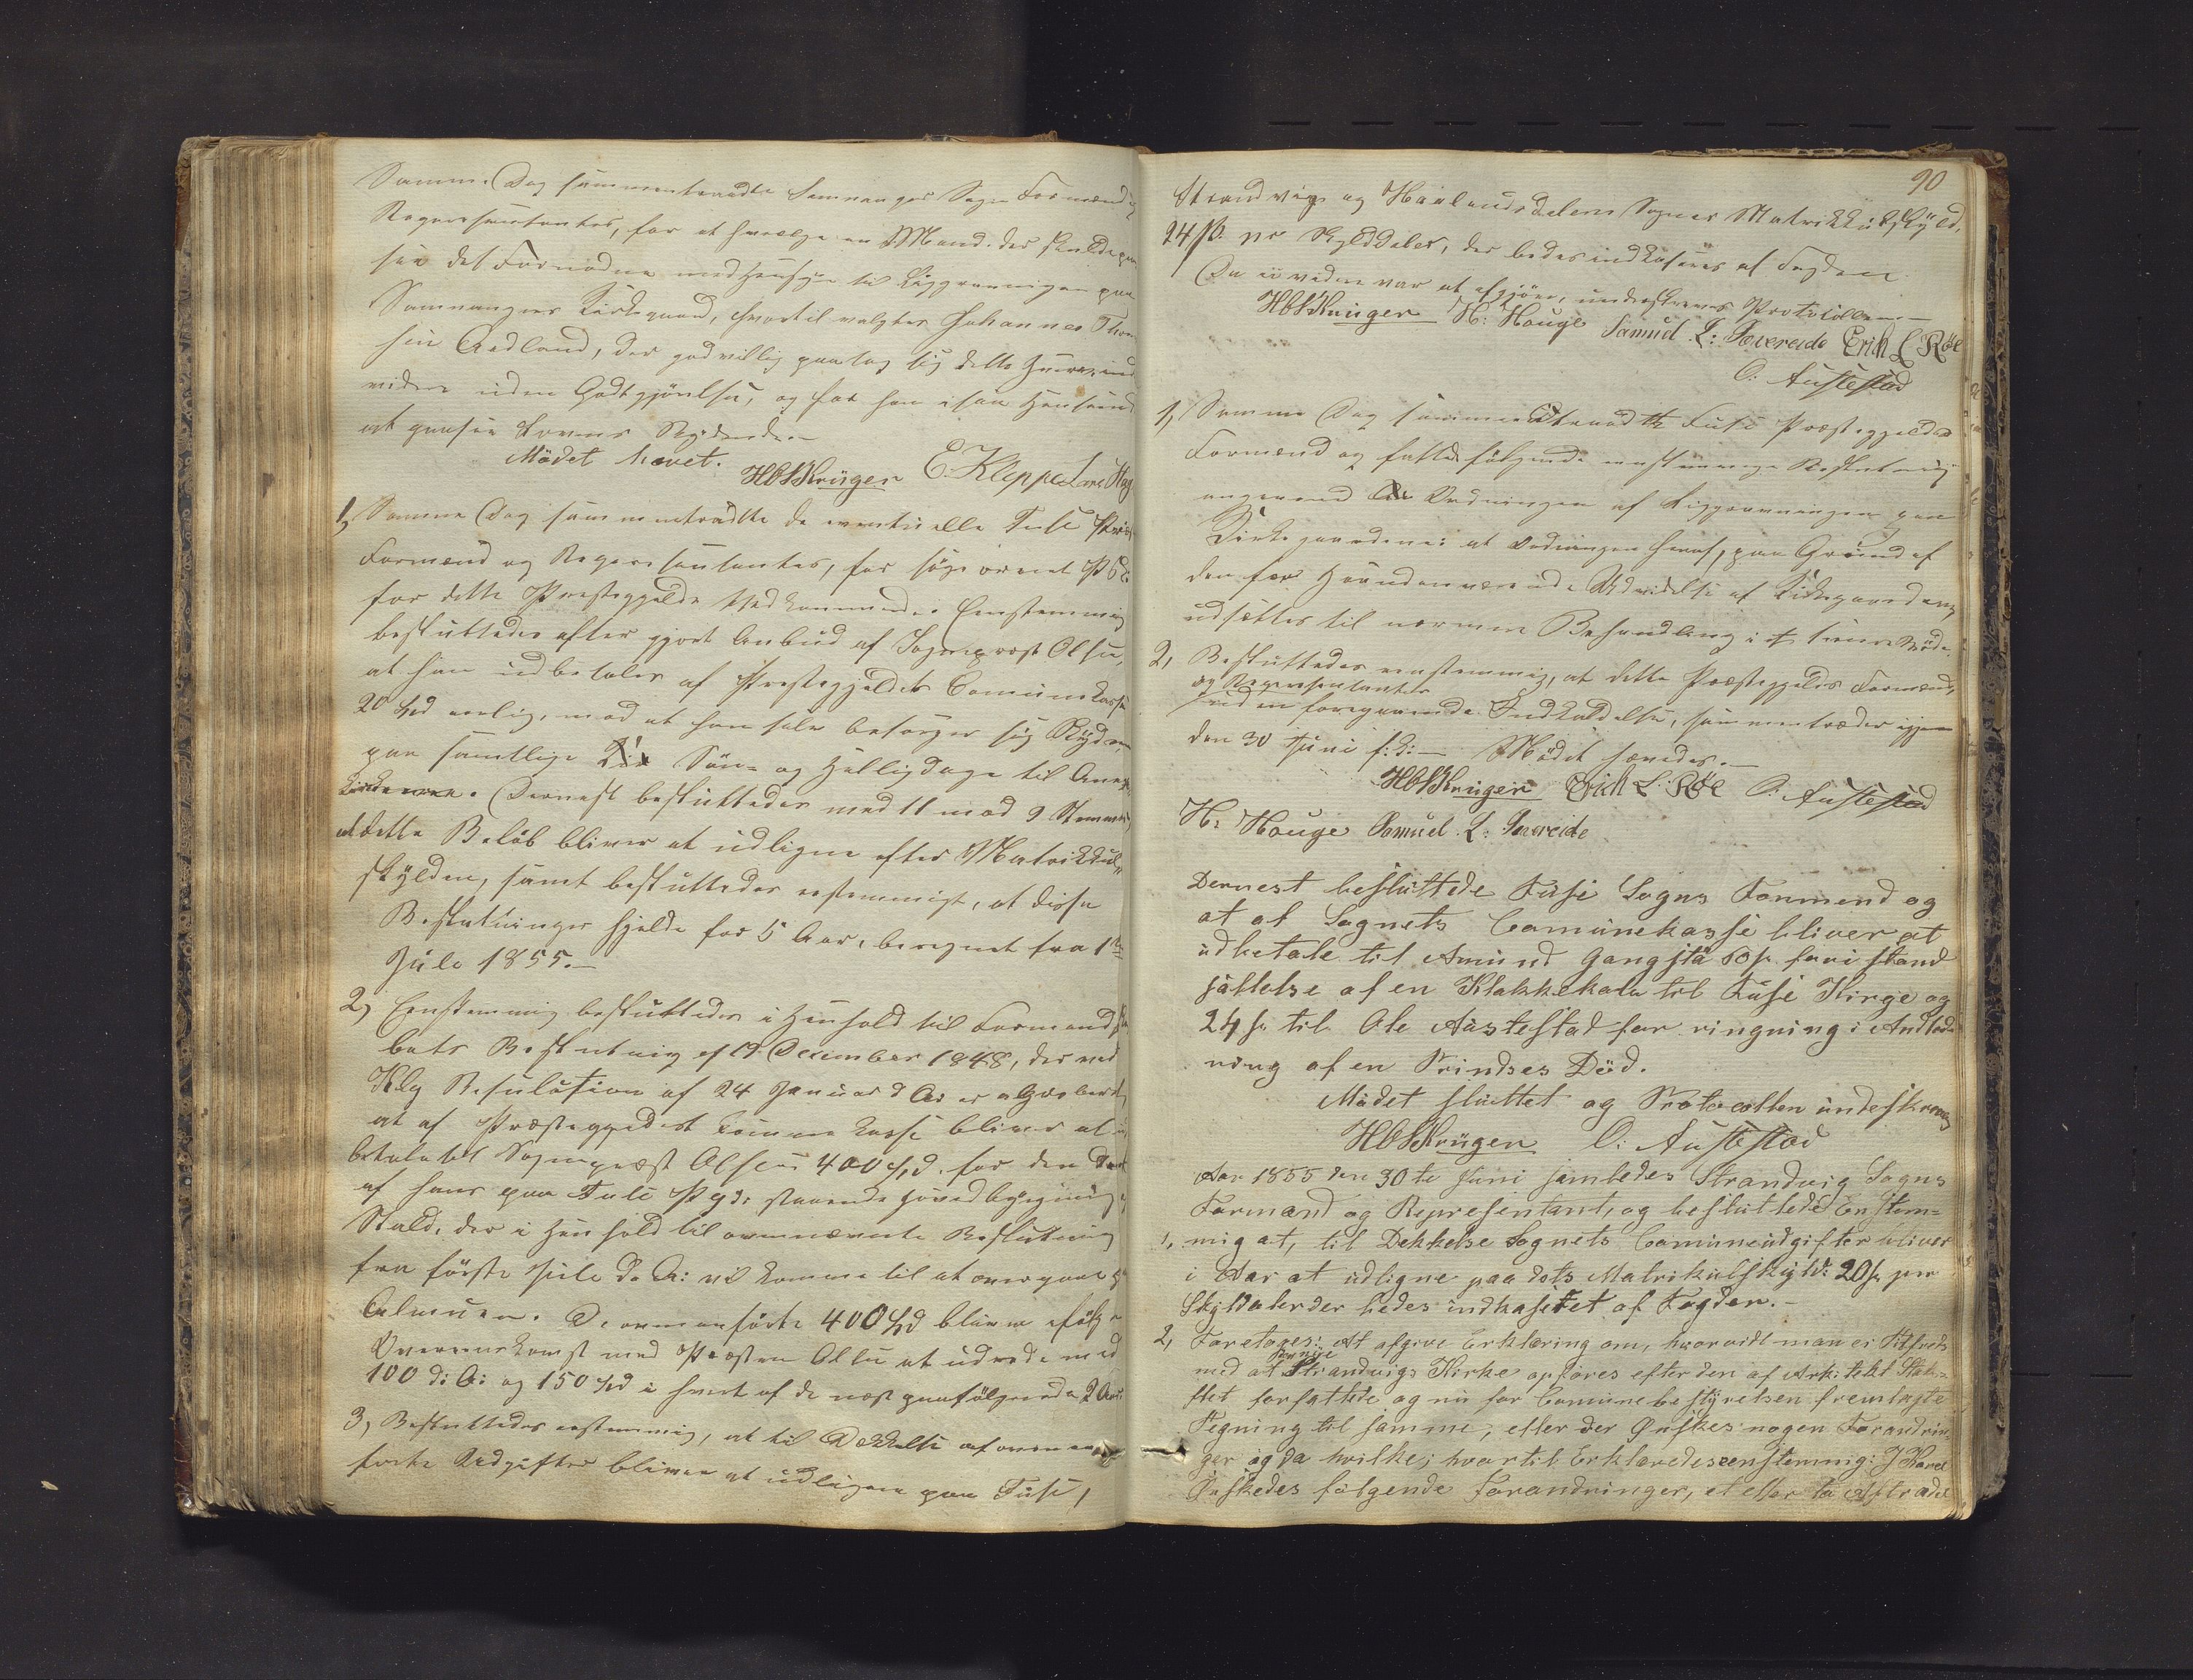 Samme Dag sammentraadte Samnanger Sogns Formænd og
Repræsentanter, for at henvælge en Mand, der skulde paa
see det Fornødne med Hensyn til Liggravningen paa
Samnangers Kirkegaard, hvortil valgtes Johannes Thom
sen Aadland, der godvillig paatog sig dette Hverv ind
videre uden Godtgjörelse, og har han i saa Henseende
at paasee Lovens Bydende.
Mödet hævet.
HbSKrüger E. Kleppe Lars Hag
1, Samme Dag sammentraadte de eventuelle Fuse Præste
Formænd og Repræsentanter, for
for dette Præstegjeld Vedkommende. Eenstemmig
besluttedes efter gjort Anbud af Sognepræst Olsen,
at han udbetales af Præstegjeldets Comunekasse
20 Spd aarlig, mod at han selv besørger sig Skyds
paa samtlige Søn- og Helligdage til Anex
kirkerne. Dernæst besluttedes med 11 mod 9 Stemmer
at dette Beløb bliver at udligne efter Matrikkul
skylden, samt besluttedes eenstemmigt, at disse
Beslutninger gjelde for 5 Aar, beregnet fra 1ste
Juli 1855.
2, Eenstemmig besluttedes i Henhold til Formandska
bets Beslutning af 19 December 1848, der ved
Klg Resolution af 24 Januar d A: er approberet,
at af Præstegjeldets Comune kasse bliver at ud
betale til Sognepræst Olsen 400 Spd. for den Deel
af hans paa Fuse Pgd: staaende Hovedbygning og
Stald, der i Henhold til ovennævnte Beslutning
fra første Juli d. A: vil komme til at overgaae til
Almuen. De ovenanførte 400 Spd bliver ifølge
Overeenskomst med Præsten Olsen at udrede med
100 d: A: og 150 Spd i hvert af de næst paafølgende 2 Aar.
3, Besluttedes eenstemmig, at til Dækkelse af ovenan
førte Udgifter bliver at udligne paa Fuse,
90
Strandvigs og Haalandsdalens Sognes Matrikkulskyld,
24 ß. pr Skylddaler, der bedes indkasseres af Fogden
Da ei videre var at afgjöre, underskreves Protocollen.
HbSKrüger H: Hauge Samuel L: Sævereide Erik L Röe
O: Austestad
1, Samme Dag sammentraadte Fuse Præstegjelds
Formænd og fattede følgende eenstemmige Beslutning
angaaende Ordningen af Liggravningen paa
Kirkegaardene: at Ordningen heraf, paa Grund af
den for Haanden værende Udvidelse af Kirkegaardene,
udsættes til nærmere Behandling i et senere Möde.
2, Besluttedes eenstemmig, at dette Præstegjelds Formænd
og Repræsentanter
uden foregaaende Indkaldelse, sammentræder igjen
den 30 Juni f: k: — Mödet hævedes.
HbSKrüger Erik L. Röe O. Austestad
H: Hauge Samuel L: Sævereide
Dernest besluttede Fuse Sogns Formend og
at af Sognets Comunekasse bliver at
udbetale til Amund Gangstø 60 ß. for istand
sættelse af en Klokkekolv til Fuse Kirge og
24 ß. til Ole Austestad for ringning i Anled
ning af en Prindses Död.
Mödet sluttet og Protocollen underskreven
HbSKrügen O: Austestad
Aar 1855 den 30te Juni samledes Strandvig Sogns
Formænd og Representant, og besluttede Enstem=
1, mig at, til Dekkelse Sognets Comuneudgifter bliver
i Aar at udligne paa dets Matrikulskyld: 20 ß. per
Skyldaler der bedes indkaseret af Fogden.
2, Foretoges: At afgive Erklæring om, hvorvidt man er Tilfreds
med at Strandvigs Kirke opføres efter den af Arkitekt
forfattede og nu for Comunebestyrelsen fremlagte
Tegning til samme, eller der Ønskes nogen Forandrin=
ger og da hvilke; hvortil Erklæredes eenstemmig:
Ønskedes følgende Forandringer,